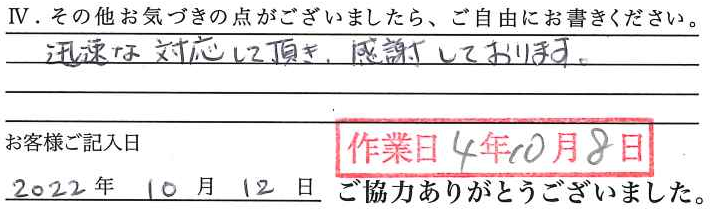 Ⅳ．その他お気づきの点がございましたら、ご自由にお書きください。
迅速な対応して頂き、感謝しております。
お客様ご記入日
作業日 4年10月8日
2022年 10月 12日 ご協力ありがとうございました。